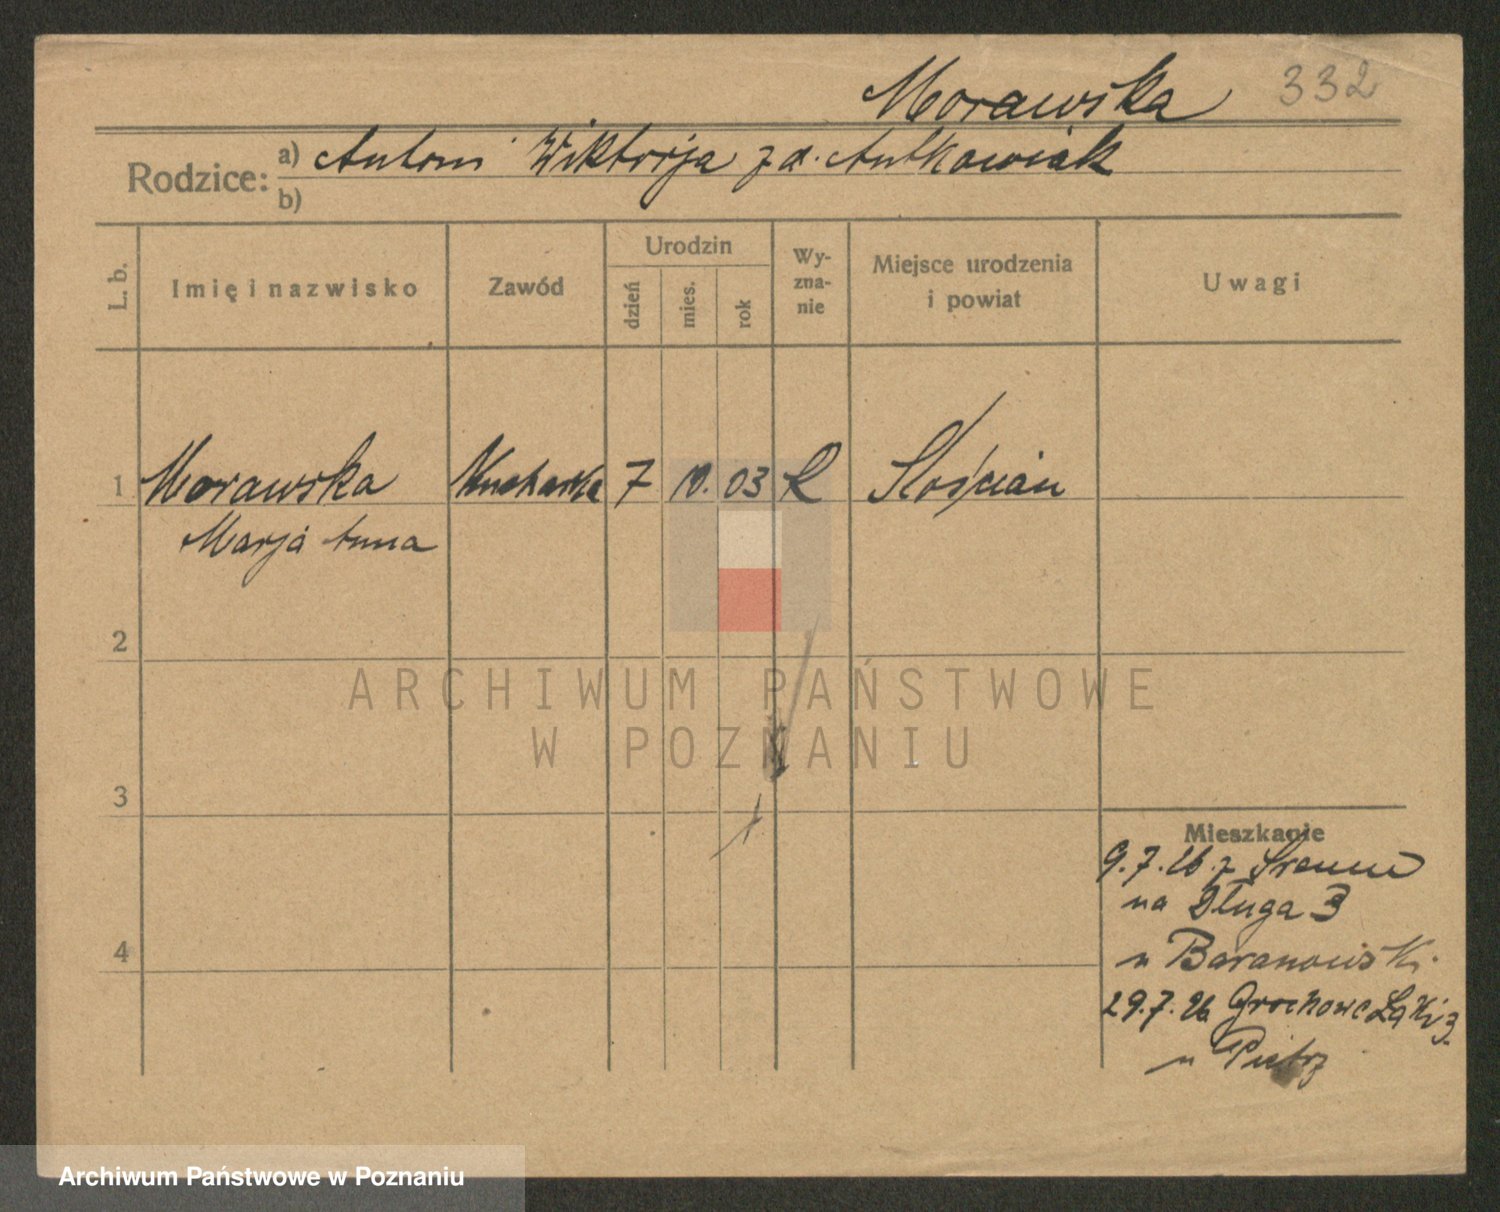 Morawska 332
Rodzice: a) Antoni Wiktorja z d. Antkowiak
b)
L. b. Imię i nazwisko Zawód Urodzin dzień mies. rok Wy-zna-nie Miejsce urodzenia i powiat Uwagi
1 Morawska Kucharka 7 10. 03 R Słościan
Marja Anna
2
ARCHIWUM PAŃSTWOWE
W POZNANIU
3
Mieszkanie
9.7.26 z Śremu
na Długa 3
4
u Baranowsk.
29.7.26 Grochowe Łąki 3.
u Pietrz
Archiwum Państwowe w Poznaniu